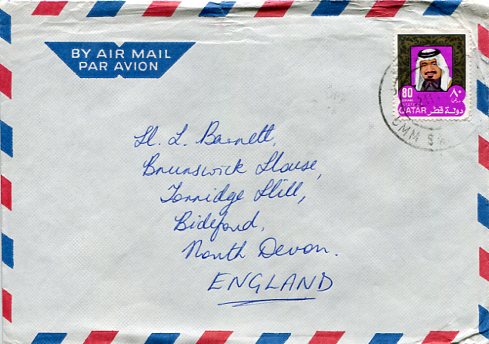 BY AIR MAIL
PAR AVION
80
٨٠
QATAR دولة قطر
UMM S
H. L. Barnett,
Brunswick House,
Torridge Hill,
Bideford,
North Devon.
ENGLAND